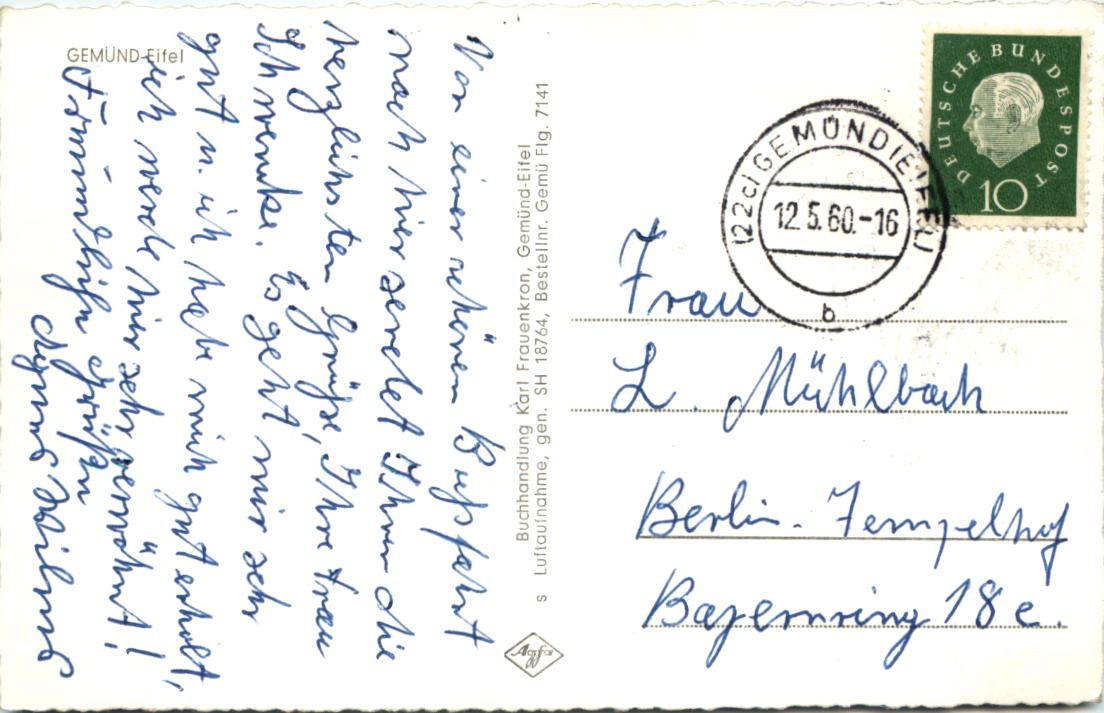 GEMÜND-Eifel
Von einer schönen Busfahrt
nach hier sendet Ihnen die
herzlichsten Grüße, Ihre Frau
Schwenke. Es geht mir sehr
gut u. ich habe mich gut erholt,
ich werde hier sehr verwöhnt!!
Freundliche Grüße
Agnes Wilms
Buchhandlung Karl Frauenkron, Gemünd-Eifel
s Luftaufnahme, gen. SH 18764, Bestellnr. Gemü Flg. 7141
Agfa
DEUTSCHE BUNDESPOST
10
(22c) GEMÜND (EIFEL)
12.5.60.-16
b
Frau
L. Mühlbach
Berlin-Tempelhof
Bayernring 18 c.